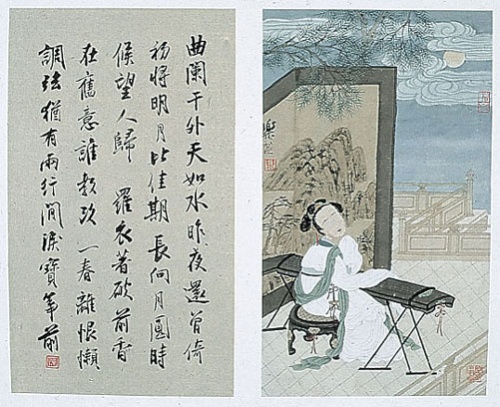 曲闌干外天如水昨夜還曾倚
初將明月比佳期長向月圓時
候望人歸　羅衣著破前香
在舊意誰教改一春離恨懶
調弦猶有兩行閒淚寶箏前